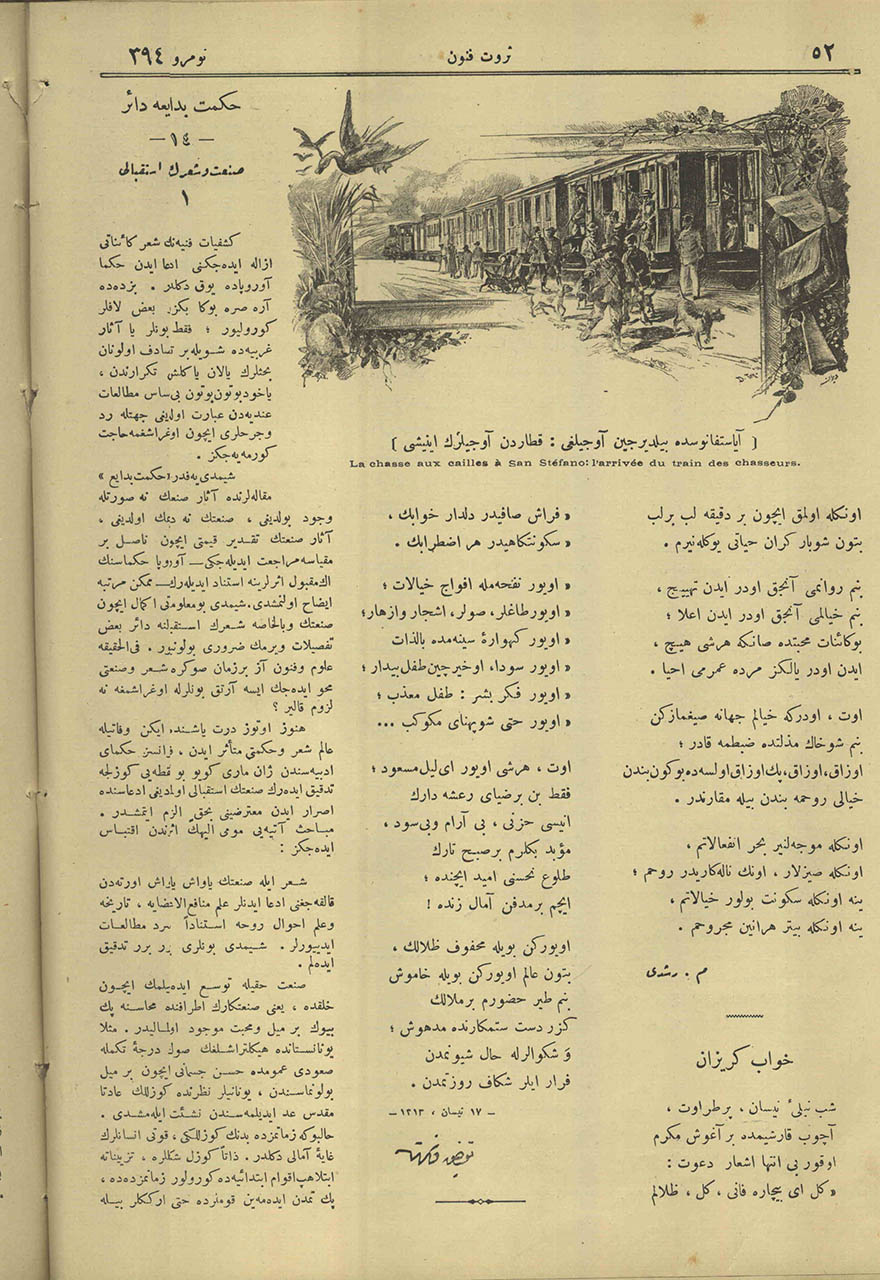 ٥٢
ثروت فنون
نومرو ٣٩٤
﴿ آياستفانوسده بيلديرجين آوجيلغى : قطاردن آوجيلرك اينيشى ﴾
La chasse aux cailles à San Stéfano: l'arrivée du train des chasseurs.
اونكله اولمق ايچون بر دقيقه لب برلب
بتون شوبار كران حياتى يوكله نيرم .
بنم روانمى آنجق اودر ايدن تهييج ،
بنم خيالمى آنجق اودر ايدن اعلا ؛
بوكائنات محبتده صانكه هرشى هيچ ،
ايدن اودر يالكز مرده عمرمى احيا .
اوت ، اودركه خيالم جهانه صيغمازكن
بنم شوخاك مذلتده ضبطمه قادر ؛
اوزاق،اوزاق،پك اوزاق اولسه ده بوكون بندن
خيالى روحمه بندن بيله مقارندر .
اونكله موجه لنير بحر انفعالاتم ،
اونكله صيزلار ، اونك ناله كاريدر روحم ؛
ينه اونكله سكونت بولور خيالاتم ،
ينه اونكله بيتر هرانين مجروحم .
م . رشدى
خواب كريزان
شب نيلىٔ نيسان ، پرطراوت ،
آچوب قارشيمده بر آغوش مكرم
اوقور بى انتها اشعار دعوت :
« كل اى بيچاره فانى ، كل ، ظلالم
« فراش صافيدر دلدار خوابك ،
« سكونتكاهيدر هر اضطرابك .
« اويور نفحه مله افواج خيالات ؛
« اويور طاغلر، صولر، اشجار وازهار؛
« اويور كهوارۀ سينه مده بالذات
« اويور سودا، اوخيرچين طفل بيدار ؛
« اويور فكر بشر : طفل معذب ؛
« اويور حتى شوپهناى مكوكب ...
اوت ، هرشى اويور اى ليل مسعود ؛
فقط بن برضياى رعشه دارك
انيسى حزنى ، بى آرام وبى سود ،
مؤبد بكلرم برصبح تارك
طلوع نحسنى اميد ايچنده ؛
ايچم برمدفن آمال زنده !
اويوركن بويله محفوف ظلالك ،
بتون عالم اويوركن بويله خاموش
بنم طير حضورم برملالك
كزر دست ستمكارنده مدهوش ؛
وَ شكوالرله حال شيونمدن
فرار ايلر شكاف روزنمدن .
— ١٧ نيسان ، ١٣١٣ —
توفيق فكرت
حكمت بدايعه دائر
— ١٤ —
صنعت وشعرك استقبالى
١
كشفيات فنيه نك شعر كائناتى
ازاله ايده جكنى ادعا ايدن حكما
آوروپاده يوق دكلدر . بزده ده
آره صره بوكا بكزر بعض لافلر
كورولييور ؛ فقط بونلر يا آثار
غربيه ده شويله بر تصادف اولونان
بحثلرك يالان ياكلش تكرارندن ،
ياخود بوتون بوتون بى ساس مطالعات
عنديه دن عبارت اولديغى جهتله رد
وجرحلرى ايچون اوغراشغمه حاجت
كورمه يه جكز .
شيمدى يه قدر «حكمت بدايع»
مقاله لرنده آثار صنعتك نه صورتله
وجود بولديغى ، صنعتك نه ديمك اولديغى ،
آثار صنعتك تقدير قيمتى ايچون ناصل بر
مقياسه مراجعت ايديله جكى — آوروپا حكماسنك
اك مقبول اثرلرينه استناد ايديله رك — ممكن مرتبه
ايضاح اولنمشدى. شيمدى بومعلوماتى اكمال ايچون
صنعتك وبالخاصه شعرك استقبالنه دائر بعض
تفصيلات ويرمك ضرورى بولونيور . فى الحقيقه
علوم وفنون آز برزمان صوكره شعر وصنعتى
محو ايده جك ايسه آرتق بونلرله اوغراشمغه نه
لزوم قالير ؟
هنوز اوتوز درت ياشنده ايكن وفاتيله
عالم شعر وحكمتى متأثر ايدن ، فرانسز حكماى
ادبيه سندن ژان مارى كويو بو نقطه يى كوزلجه
تدقيق ايده رك صنعتك استقبالى اولماديغى ادعاسنده
اصرار ايدن معترضينى بحق الزم ايتمشدر .
مباحث آتيه يى مومى اليهك اثرندن اقتباس
ايده جكز :
شعر ايله صنعتك ياواش ياواش اورته دن
قالقه جغنى ادعا ايدنلر علم منافع الاعضايه ، تاريخه
وعلم احوال روحه استناداً سرد مطالعات
ايدييورلر . شيمدى بونلرى بر بر تدقيق
ايده لم .
صنعت حقيله توسع ايده بيلمك ايچون
خلقده ، يعنى صنعتكارك اطرافنده محاسنه پك
بيوك بر ميل ومحبت موجود اولماليدر . مثلا
يونانستانده هيكلتراشلغك صوك درجۀ تكمله
صعودى عمومده حسن جسمانى ايچون بر ميل
بولونماسندن ، يونانيلر نظرنده كوزللك عادتا
مقدس عد ايديلمه سندن نشئت ايله مشدى .
حالبوكه زمانمزده بدنك كوزللكى ، قوتى انسانلرك
غايۀ آمالى دكلدر . ذاتاً كوزل شكللره ، تزييناته
ابتلا هپ اقوام ابتدائيه ده كورولور زمانمزده ده ،
پك تمدن ايده مه ين قوملرده حتى ارككلر بيله